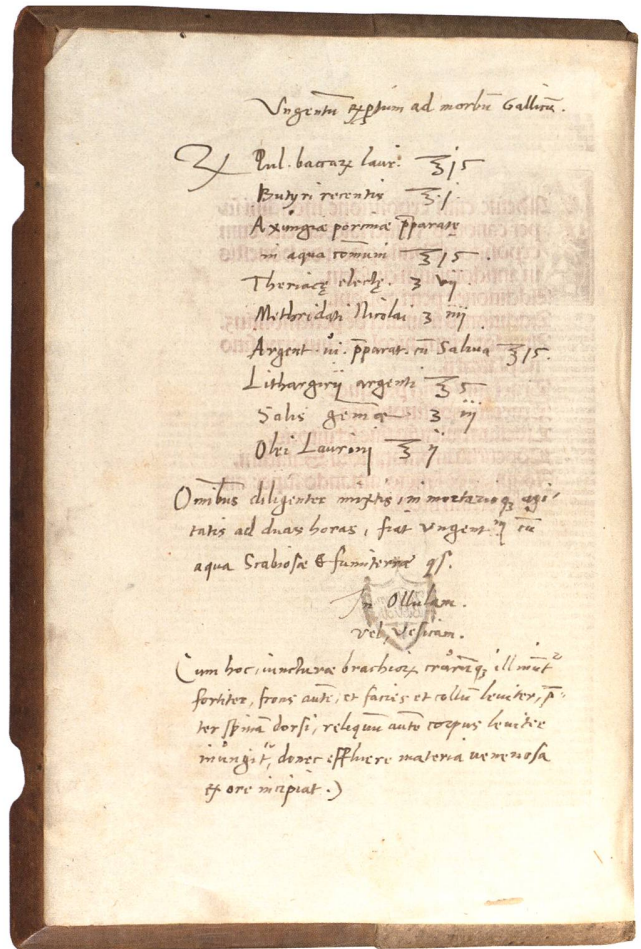 Vngentū exptum ad morbū Gallicū.
℞ Pul. baccaꝝ lauri. ℥ j ʒ
Butyri recentis ℥ j
Axungiæ porcinæ p̄paratę
in aqua comuni ℥ j ʒ.
Theriacę electę. ʒ vj
Methridati Nicolai ʒ iiij
Argent. ui. p̄parat. cū Saliua ℥ j ʒ.
Lithargirij argenti ℥ ʒ
Salis gemæ ʒ iij
Olei Laurini ℥ ij
Omībus diligenter mixtis, in mortarioqꝫ agi-
tatis ad duas horas, fiat vngent cū
aqua Scabiosæ & fumiterræ qs.
In Ollulam.
vel, Vesicam.
Cum hoc, iuncturæ brachioꝝ crurūqꝫ
fortiter, frons autē, et facies et collū leuiter, p̄-
ter spinā dorsi, reliquū autē corpus leuitee
inungit, donec effluere materia uenenosa
ex ore incipiat.)